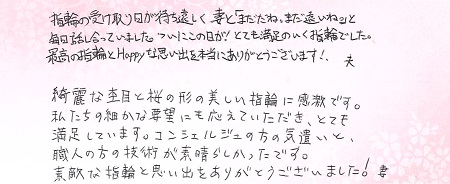 指輪の受け取り日が待ち遠しく妻と「まだだね、まだ遠いね。」と
毎日話し合っていました。ついにこの日が!とても満足のいく指輪でした。
最高の指輪とHappyな思い出を本当にありがとうございます!、夫
綺麗な杢目と桜の形の美しい指輪に感激です。
私たちの細かな要望にも応えていただき、とても
満足しています。コンシェルジュの方の気遣いと、
職人の方の技術が素晴らしかったです。
素敵な指輪と思い出をありがとうございました!妻